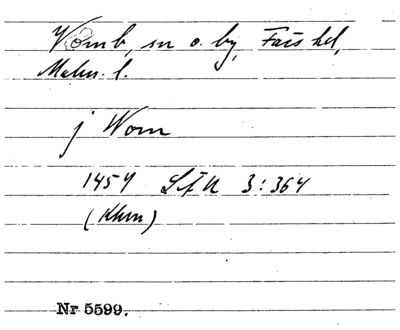 Vomb, sn o. by, Färs hd,
Malm. l.
j Wom
1454 LÄU 3:364
(Khn)
Nr 5599.